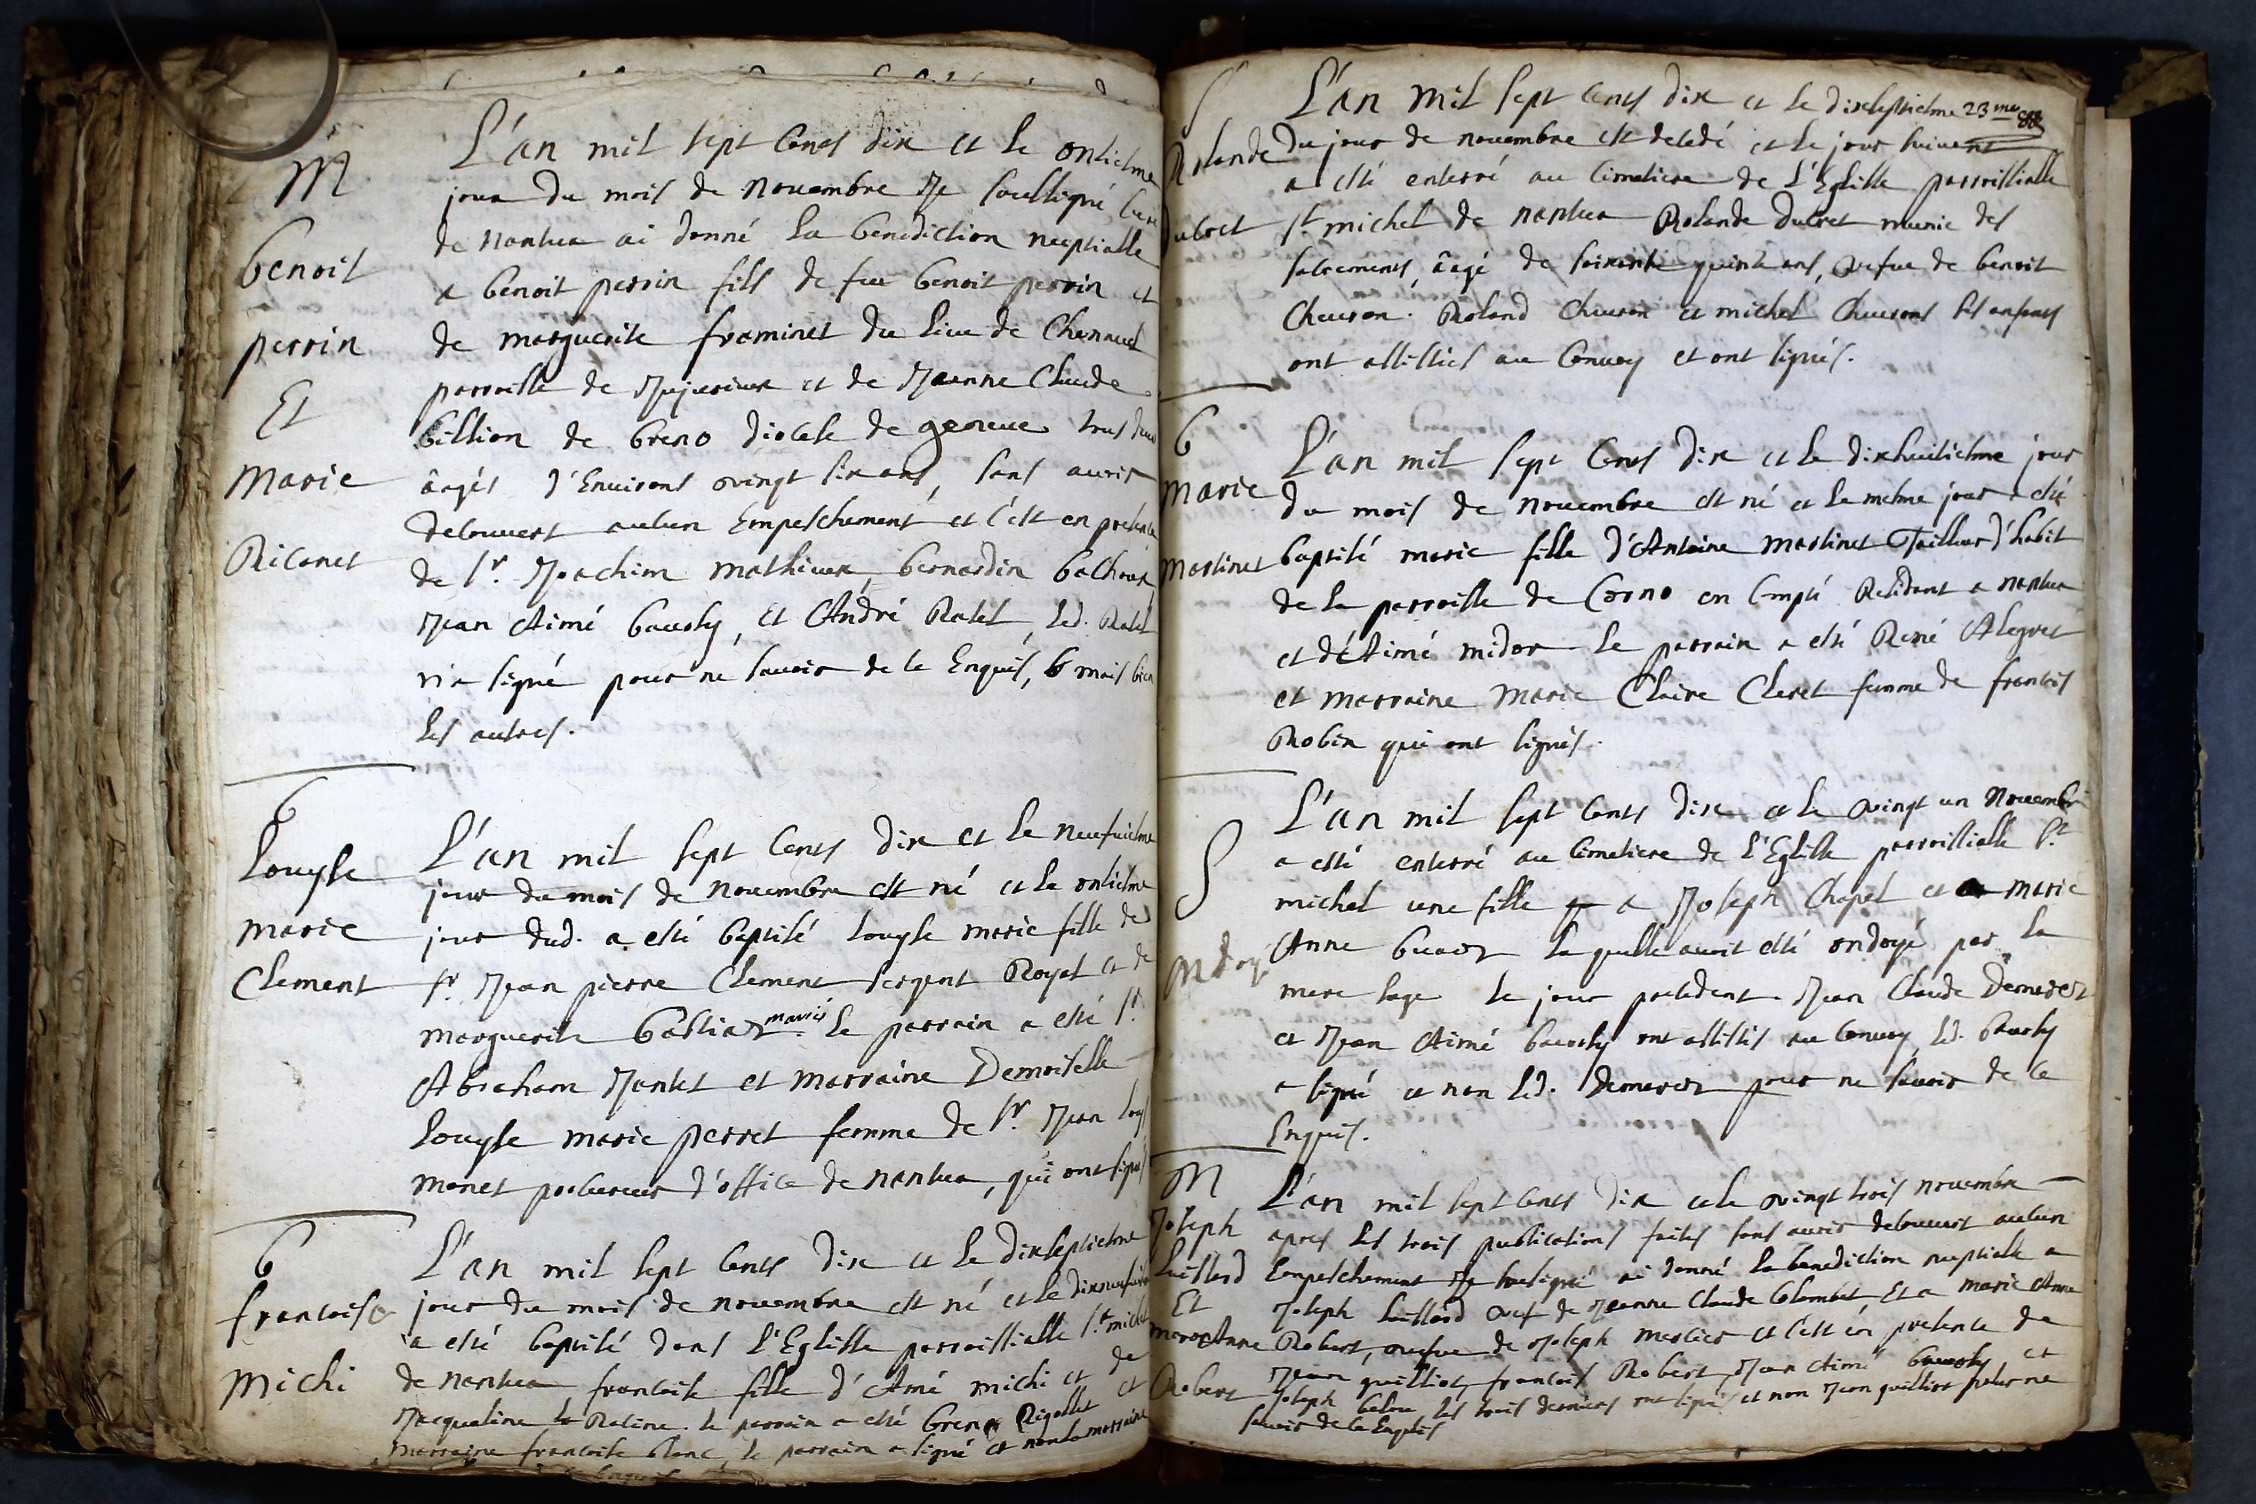 M
benoit
perrin
Et
Marie
Ricanet
L'an mil sept Cents dix et le onsiesme
jour du mois de Novembre Je soussigné Curé
de Nantua ai donné la benediction nuptialle
a benoit perrin fils de feu benoit perrin et
de marguerite framinet du lieu de
parroisse de Jujurieux et de Jeanne Claude
billion de breno diocese de geneve tous deux
âagés d'Environs vingt six ans, sans avoir
decouvert aucun Empeschement et c'est en presence
de Sr. Joachim Mathieux, bernardin
Jean Aimé bavoly, et André Ratel, led. Ratel
n'a signé pour ne scavoir de ce Enquis, mais bien
les autres.
b
Louyse
marie
Clement
L'an mil sept Cents dix et le neufviesme
jour du mois de novembre est né et le onsiesme
jour dud. a esté baptisé Louyse marie fille de
Sr. Jean pierre Clement sergent Royal et de
marguerite mariés le parrain a esté Sr.
Abraham Jantet et marraine Demoiselle
Louyse marie perret femme de Sr. Jean Louys
monet procureur d'office de nantua, qui ont signés
b
francoise
Michi
L'an mil sept Cents dix et le dixseptiesme
jour du mois de novembre est né et le dixneufvie
a esté baptisé dans l'Eglise parroissialle St. michel
de nantua francoise fille d'Amé michi et de
Jacqueline Racine. le parrain a esté Rigollet et
marraine francoise blanc, le parrain a signé et non la marraine
S
Rolande
ducret
L'an mil sept Cents dix et le dixseptiesme 23me
du jour de novembre est decedé et le jour suivent
a esté enterré au Cimetiere de l'Eglise parroissialle
St. michel de nantua Rolande ducret munie des
sacrements, âagé de soixante quinse ans, vefve de benoit
Chevron. Roland Chevron et michel Chevrons ses enfans
ont assistés au Convoy et ont signés.
b
Marie
Martinet
L'an mil sept Cents dix et le dixhuitiesme jour
du mois de novembre est né et le mesme jour a esté
baptisé marie fille d'Antoine martinet Tailleur d'habit
de la parroisse de Corno en Compté Residant a nantua
et d'Aimé midor le parrain a esté René Alegret
et marraine marie Claire Cleret femme de francois
Robin qui ont signés.
S
Ondoyé
L'an mil sept Cents dix et le vingt un Novembre
a esté enterré au Cimetiere de l'Eglise parroissialle St.
michel une fille a Joseph Chapel et a marie
Anne laquelle avoit esté ondoyé par la
mere sage le jour precedent. Jean Claude Demorez
et Jean Aimé bavoly ont assistés au Convoy led. bavoly
a signé et non led. Demorez pour ne scavoir de ce
Enquis.
M
Joseph
Luillerd
Et
marie Anne
Robert
L'an mil sept Cents dix et le vingt trois novembre
apres les trois publications faites sans avoir decouvert aucun
Empeschement Je soussigné ai donné la benediction nuptialle a
Joseph Luillerd veuf de Jeanne Claude Colombet Et a marie Anne
Robert, veufve de Joseph mercier et c'est en presence de
Jean guilliot, francois Robert, Jean Aimé bavoly et
Joseph les trois derniers ont signés et non Jean guilliot pour ne
scavoir de ce Enquis